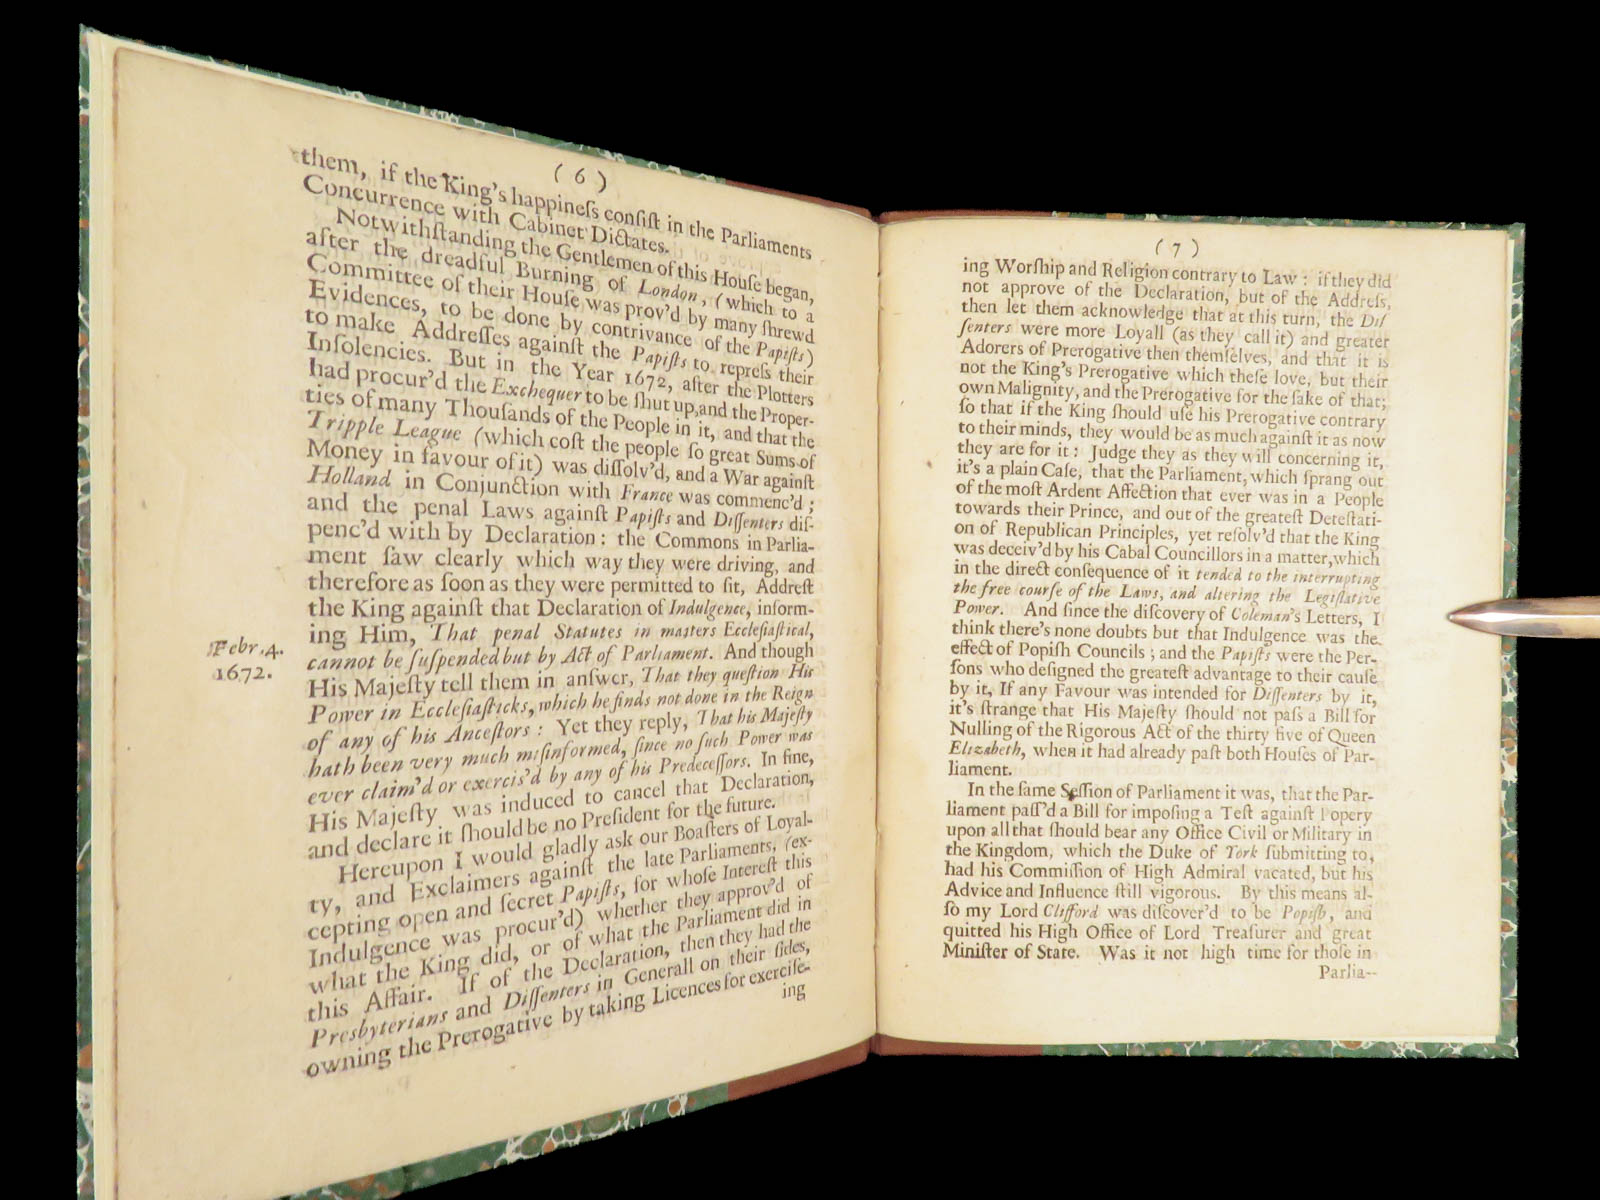 ( 6 )
them, if the King's happineſs conſiſt in the Parliaments
Concurrence with Cabinet Dictates.
Notwithſtanding the Gentlemen of this Houſe began,
after the dreadful Burning of London, (which to a
Committee of their Houſe was prov'd by many ſhrewd
Evidences, to be done by contrivance of the Papiſts)
to make Addreſſes againſt the Papiſts to repreſs their
Inſolencies. But in the Year 1672, after the Plotters
had procur'd the Exchequer to be ſhut up, and the Proper-
ties of many Thouſands of the People in it, and that the
Tripple League (which coſt the people ſo great Sums of
Money in favour of it) was diſſolv'd, and a War againſt
Holland in Conjunction with France was commenc'd ;
and the penal Laws againſt Papiſts and Diſſenters diſ-
penc'd with by Declaration : the Commons in Parlia-
ment ſaw clearly which way they were driving, and
therefore as ſoon as they were permitted to ſit, Addreſt
the King againſt that Declaration of Indulgence, inform-
Febr. 4.
1672.
ing Him, That penal Statutes in matters Eccleſiaſtical,
cannot be ſuſpended but by Act of Parliament. And though
His Majeſty tell them in anſwer, That they queſtion His
Power in Eccleſiaſticks, which he finds not done in the Reign
of any of his Anceſtors : Yet they reply, That his Majeſty
hath been very much miſinformed, ſince no ſuch Power was
ever claim'd or exercis'd by any of his Predeceſſors. In fine,
His Majeſty was induced to cancel that Declaration,
and declare it ſhould be no Preſident for the future.
Hereupon I would gladly ask our Boaſters of Loyal-
ty, and Exclaimers againſt the late Parliaments, (ex-
cepting open and ſecret Papiſts, for whoſe Intereſt this
Indulgence was procur'd) whether they approv'd of
what the King did, or of what the Parliament did in
this Affair. If of the Declaration, then they had the
Presbyterians and Diſſenters in Generall on their ſides,
owning the Prerogative by taking Licences for exerciſe-
ing
( 7 )
ing Worſhip and Religion contrary to Law : if they did
not approve of the Declaration, but of the Addreſs,
then let them acknowledge that at this turn, the Diſ
ſenters were more Loyall (as they call it) and greater
Adorers of Prerogative then themſelves, and that it is
not the King's Prerogative which theſe love, but their
own Malignity, and the Prerogative for the ſake of that;
ſo that if the King ſhould uſe his Prerogative contrary
to their minds, they would be as much againſt it as now
they are for it : Judge they as they will concerning it,
it's a plain Caſe, that the Parliament, which ſprang out
of the moſt Ardent Affection that ever was in a People
towards their Prince, and out of the greateſt Deteſtati-
on of Republican Principles, yet reſolv'd that the King
was deceiv'd by his Cabal Councillors in a matter, which
in the direct conſequence of it tended to the interrupting
the free courſe of the Laws, and altering the Legiſlative
Power. And ſince the diſcovery of Coleman's Letters, I
think there's none doubts but that Indulgence was the
effect of Popiſh Councils ; and the Papiſts were the Per-
ſons who deſigned the greateſt advantage to their cauſe
by it, If any Favour was intended for Diſſenters by it,
it's ſtrange that His Majeſty ſhould not paſs a Bill for
Nulling of the Rigorous Act of the thirty five of Queen
Elizabeth, when it had already paſt both Houſes of Par-
liament.
In the ſame Seſſion of Parliament it was, that the Par-
liament paſſ'd a Bill for impoſing a Teſt againſt Popery
upon all that ſhould bear any Office Civil or Military in
the Kingdom, which the Duke of York ſubmitting to,
had his Commiſſion of High Admiral vacated, but his
Advice and Influence ſtill vigorous. By this means al-
ſo my Lord Clifford was diſcover'd to be Popiſh, and
quitted his High Office of Lord Treaſurer and great
Miniſter of State. Was it not high time for thoſe in
Parlia--